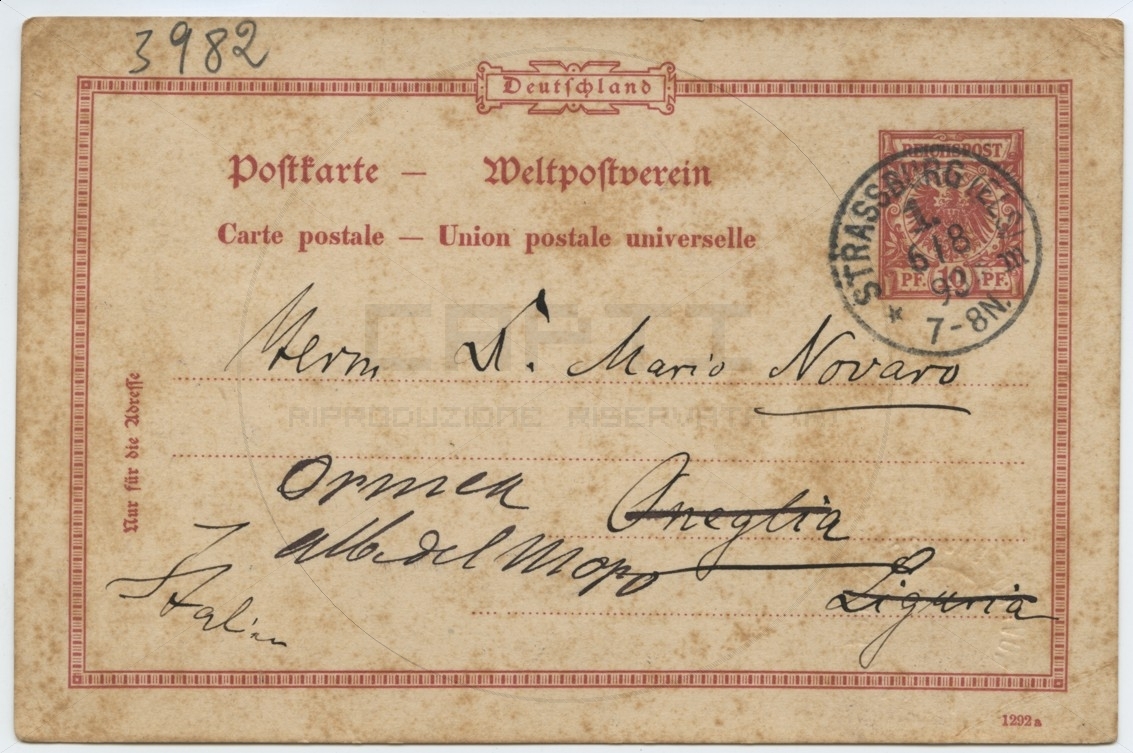 3982
Deutschland
Postkarte — Weltpostverein
Carte postale — Union postale universelle
REICHSPOST
PF. 10 PF.
STRASSBURG (ELS.)
6/8
93
7-8N.
CRPTI
Herrn Dr. Mario Novaro
RIPRODUZIONE RISERVATA
Nur für die Adresse
Ormea
Oneglia
Liguria
Italien
1292a